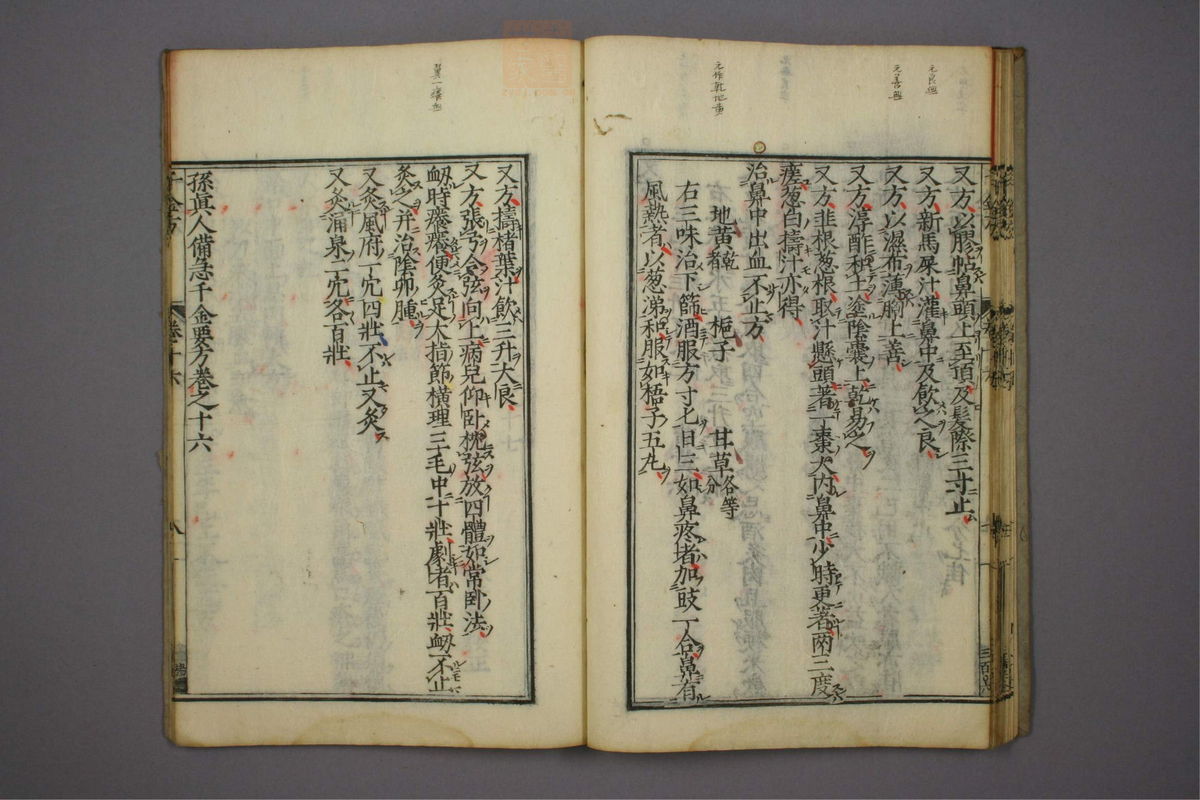 又方以膠帖鼻頭上至頂及髮際三寸止
又方新馬屎汁灌鼻中及飲之良
又方以濕布薄胸上善
又方淳酢和土塗陰囊上乾易之
又方韭根葱根取汁懸頭著一棗大內鼻中少時更著兩三度
瘥葱白擣汁亦得
治鼻中出血不止方
地黃 梔子 甘草各等分
右三味治下篩酒服方寸匕日三如鼻疼者加豉一合鼻有
風熱者以葱涕和服如梧子五丸
又方擣楮葉汁飲三升大良
又方張弓令弦向上病兒仰卧枕弦放四體如常卧法
衂時癢癢便灸足大指節橫理三毛中十壯劇者百壯衂不止
灸之并治陰卵腫
又灸風府一穴四壯不止又灸
又灸涌泉二穴各百壯
孫眞人備急千金要方卷之十六
元良無
元善無
元作乾地黃
千金方